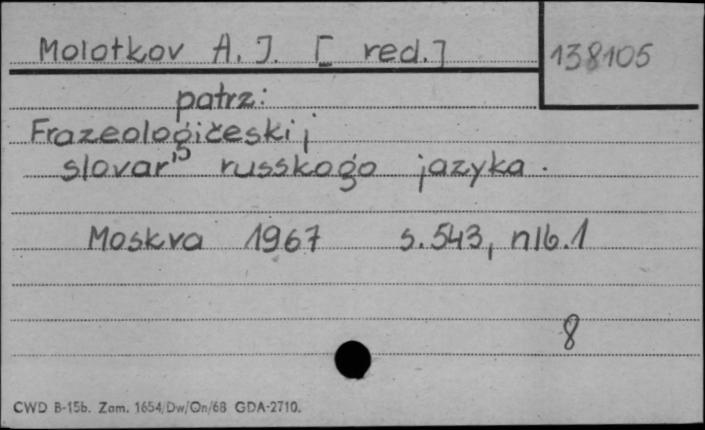 Molotkov A. J. [ red. ]
138105
patrz:
Frazeologičeskij
slovar' russkogo jazyka.
Moskva 1967 s. 543, nlb. 1
8
CWD B-15b. Zam. 1654/Dw/On/68 GDA-2710.